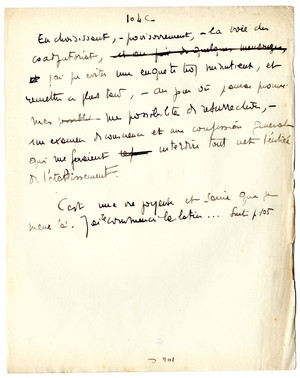 104C
En choisissant, - provisoirement, - la voie du
coadjutoriat, et au prix de quelques mensonges,
j'ai pu éviter une enquête trop minutieuse, et
remettre à plus tard, - au jour où j'aurai prouvé
mes possibilités de résurrection, -
un examen de conscience et une confession générale
qui me feraient interdire tout net l'entrée
de l'établissement.
C'est une vie paysanne et saine que je
mène ici. J'ai commencé le latin... Suite p 105
→ 701